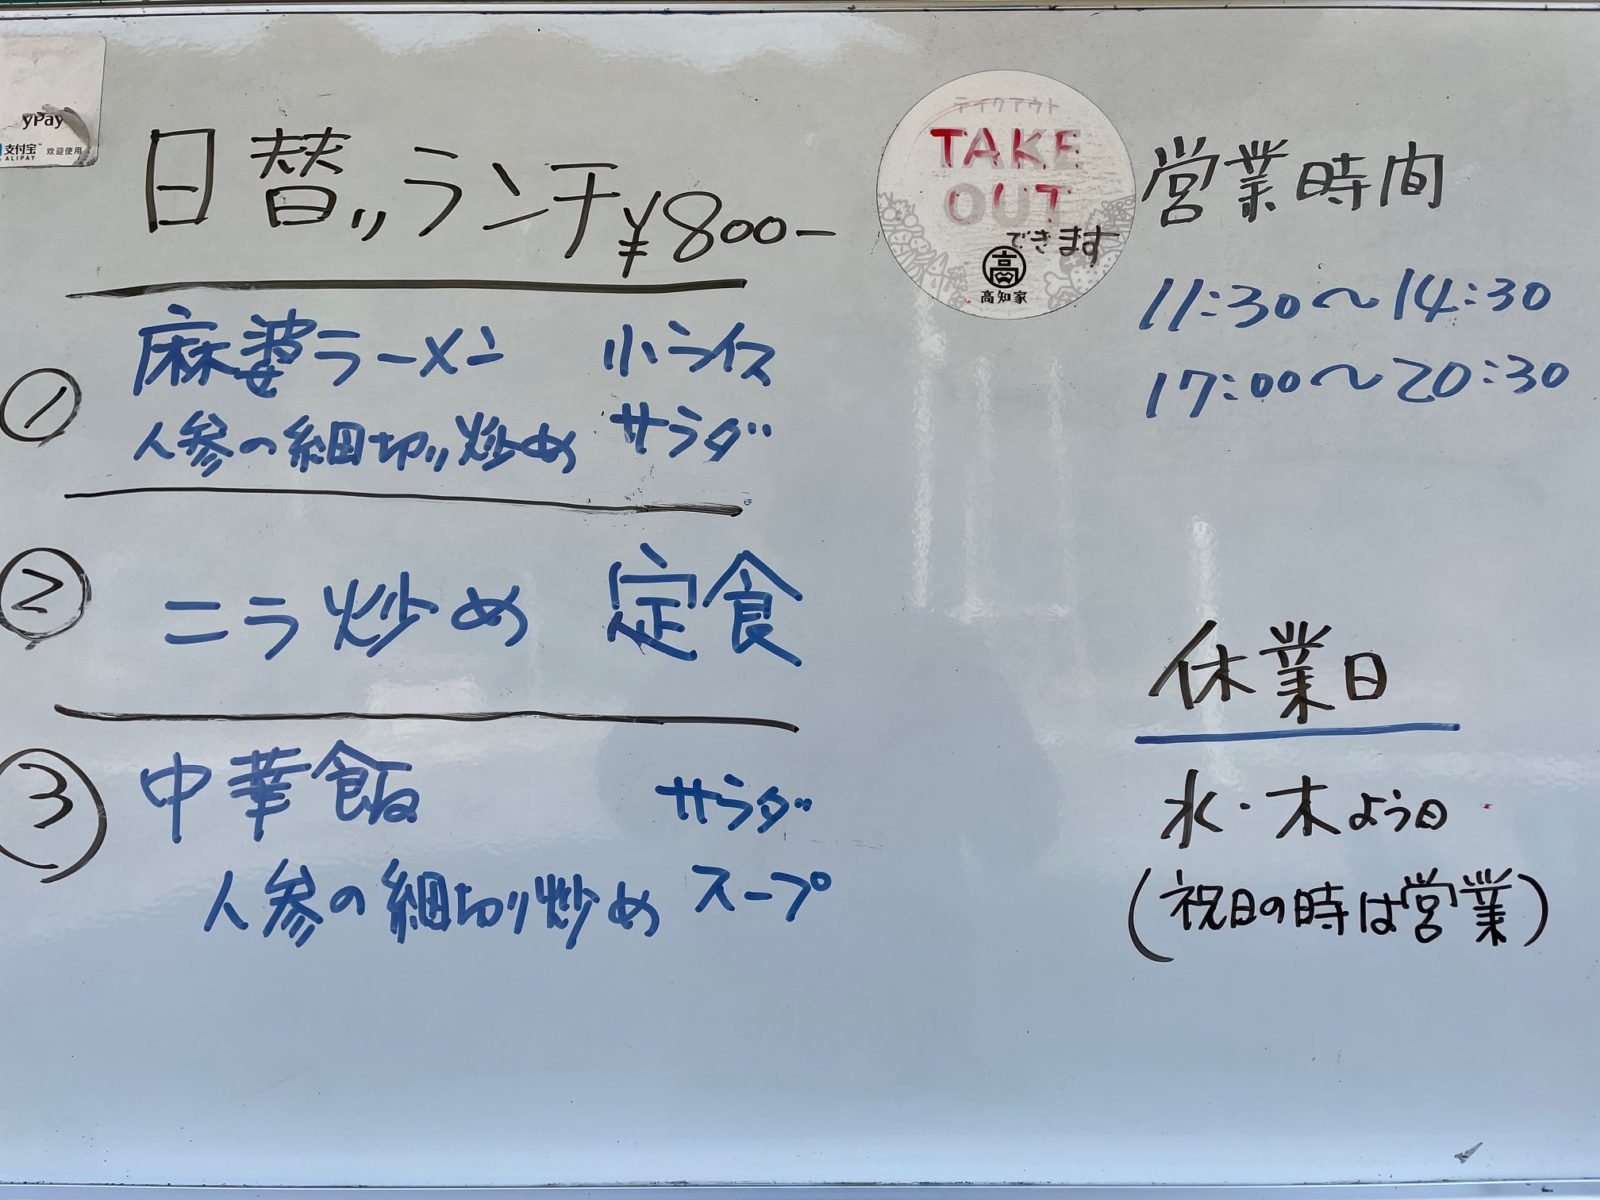 yPay
支付宝 欢迎使用
ALIPAY
日替りランチ¥800-
① 麻婆ラーメン 小ライス
人参の細切り炒め サラダ
② ニラ炒め 定食
③ 中華飯 サラダ
人参の細切り炒め スープ
テイクアウト
TAKE
OUT
できます
高
高知家
営業時間
11:30〜14:30
17:00〜20:30
休業日
水・木よう日
(祝日の時は営業)